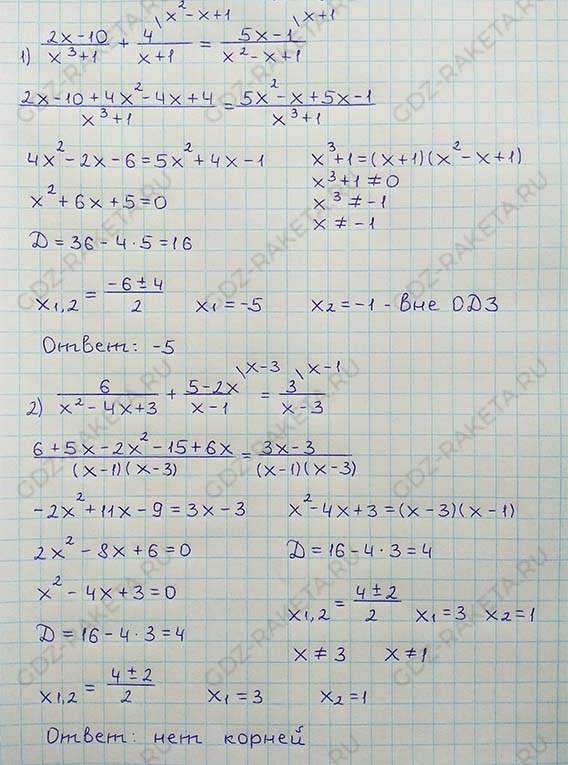 1) (2x-10)/(x³+1) + 4/(x+1) \x²-x+1 = (5x-1)/(x²-x+1) \x+1
(2x-10+4x²-4x+4)/(x³+1) = (5x²-x+5x-1)/(x³+1)
4x²-2x-6=5x²+4x-1
x³+1=(x+1)(x²-x+1)
x³+1≠0
x²+6x+5=0
x³≠-1
x≠-1
D=36-4·5=16
x₁,₂=(-6±4)/2 x₁=-5 x₂=-1 - вне ОДЗ
Ответ: -5
2) 6/(x²-4x+3) + (5-2x)/(x-1) \x-3 = 3/(x-3) \x-1
(6+5x-2x²-15+6x)/((x-1)(x-3)) = (3x-3)/((x-1)(x-3))
-2x²+11x-9=3x-3
x²-4x+3=(x-3)(x-1)
2x²-8x+6=0
D=16-4·3=4
x²-4x+3=0
x₁,₂=(4±2)/2 x₁=3 x₂=1
D=16-4·3=4
x≠3 x≠1
x₁,₂=(4±2)/2 x₁=3 x₂=1
Ответ: нет корней
GDZ-RAKETA.RU